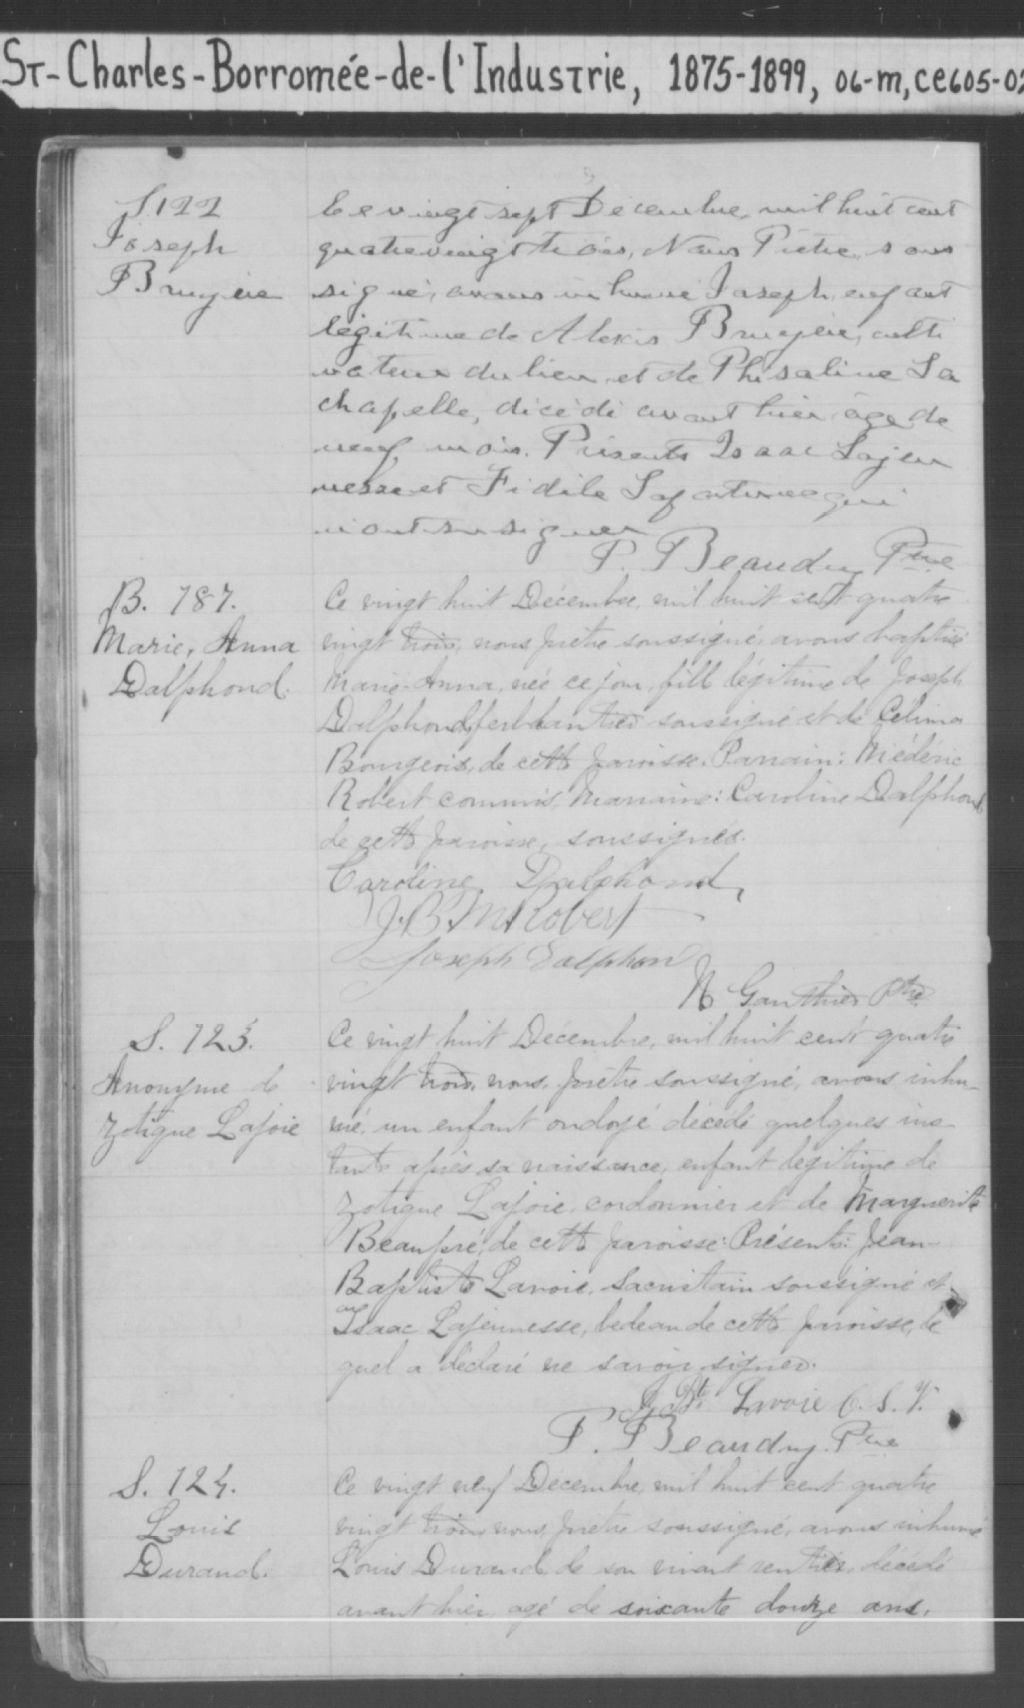 St-Charles-Borromée-de-l'Industrie, 1875-1899, 06-m, CE605-0
S. 122
Joseph
Bruyère
Ce vingt sept Décembre, mil huit cent
quatre vingt trois, Nous Prêtre, sous
signé, avons inhumé Joseph, enfant
légitime de Alexis Bruyère, culti
vateur du lieu, et de Phisaline La
chapelle, décédé avant hier âgé de
neuf mois. Présents Isaac Lajeu
nesse et Fidèle Lafortune qui
n'ont su signer
P. Beaudry Ptre
B. 187.
Marie, Anna
Dalphond.
Ce vingt huit Décembre, mil huit cent quatre
vingt trois, nous prêtre soussigné, avons baptisé
Marie-Anna, née ce jour, fille légitime de Joseph
Dalphond, ferblantier soussigné et de Célima
Bourgeois, de cette paroisse. Parrain: Médéric
Robert commis, Marraine: Caroline Dalphond
de cette paroisse, soussignés.
Caroline Dalphond,
J. B. M. Robert
Joseph Dalphon
Gauthier Ptre
S. 123.
Anonyme de
Zotique Lajoie
Ce vingt huit Décembre, mil huit cent quatre
vingt trois, nous, prêtre soussigné, avons inhu-
mé, un enfant ondoyé décédé quelques ins-
tants après sa naissance, enfant légitime de
Zotique Lajoie, cordonnier et de Marguerite
Beaupré, de cette paroisse: Présents: Jean-
Baptiste Lavoie, Sacristain soussigné et
Isaac Lajeunesse, bedeau de cette paroisse, le
quel a déclaré ne savoir signer.
J. Bte Lavoie C. S. V.
P. Beaudry Ptre
S. 124.
Louis
Durand.
Ce vingt neuf Décembre, mil huit cent quatre
vingt trois nous, prêtre soussigné, avons inhumé
Louis Durand, de son vivant rentier, décédé
avant hier, agé de soixante douze ans.